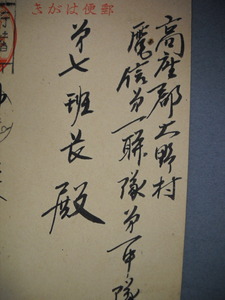 郵便はがき
高座郡大野村
電信第一聯隊第一中隊
第七班長殿